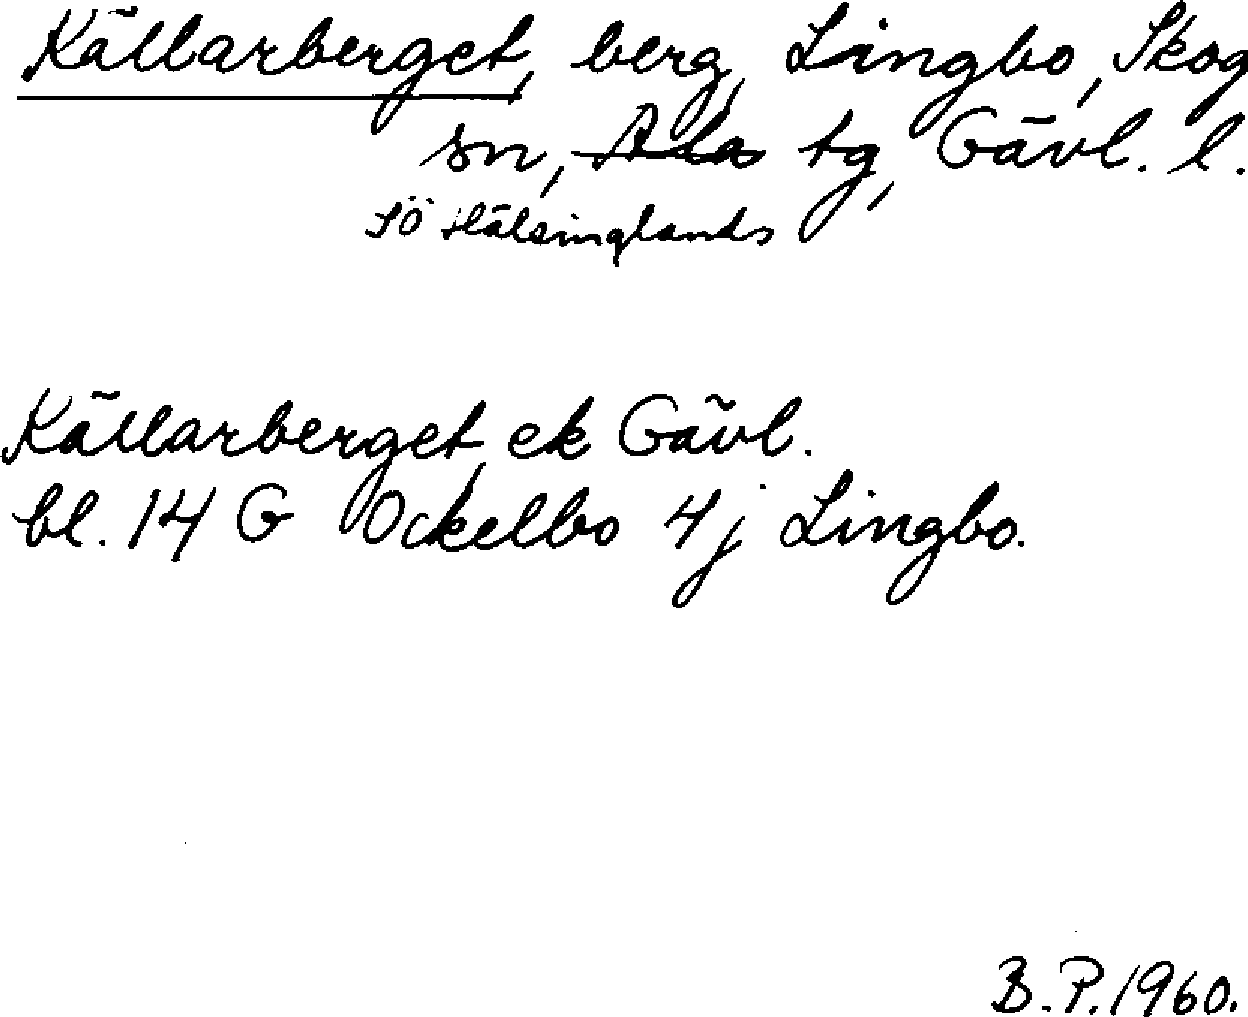 Källarberget, berg, Lingbo, Skog
sn, Ala tg, Gävl. l.
Sö Hälsinglands
Källarberget, ek Gävl.
bl. 14 G Ockelbo 4j Lingbo.
B.P. 1960.